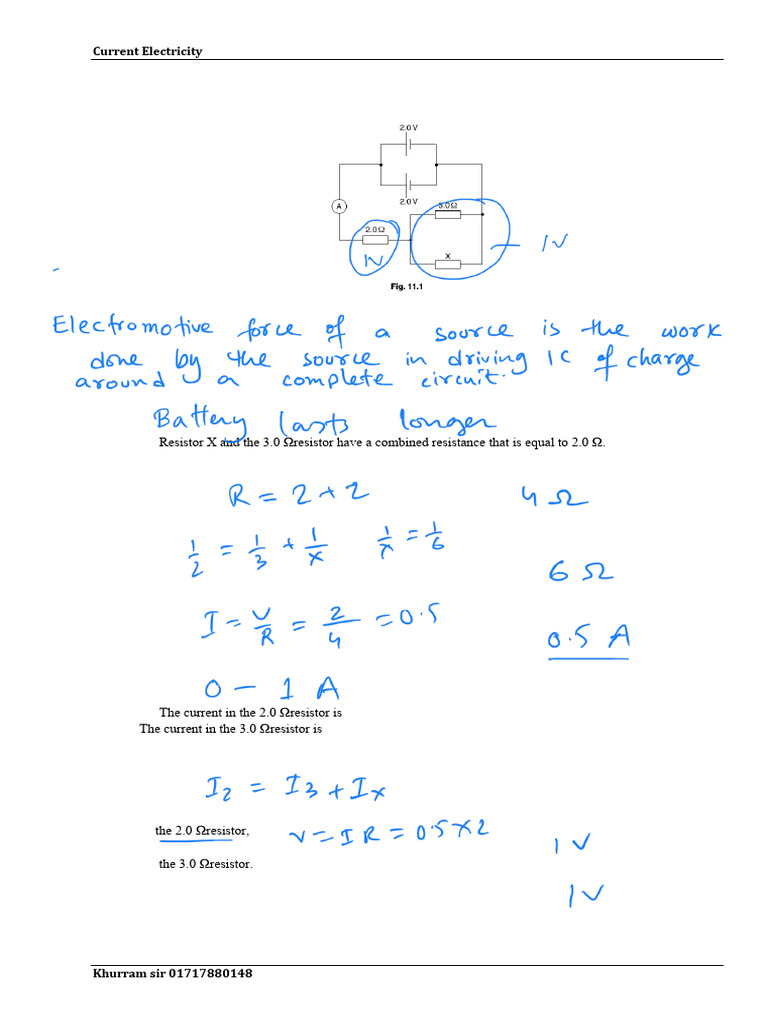 Current Electricity
2.0 V
2.0 V
A
3.0 Ω
2.0 Ω
1V
X
1V
Fig. 11.1
Electromotive force of a source is the work
done by the source in driving 1C of charge
around a complete circuit.
Battery lasts longer
Resistor X and the 3.0 Ωresistor have a combined resistance that is equal to 2.0 Ω.
R = 2 + 2 4 Ω
1/2 = 1/3 + 1/X 1/X = 1/6
6 Ω
I = V/R = 2/4 = 0.5
0.5 A
0 – 1 A
The current in the 2.0 Ωresistor is
The current in the 3.0 Ωresistor is
I2 = I3 + Ix
the 2.0 Ωresistor, V = IR = 0.5 X 2
1 V
the 3.0 Ωresistor.
1V
Khurram sir 01717880148